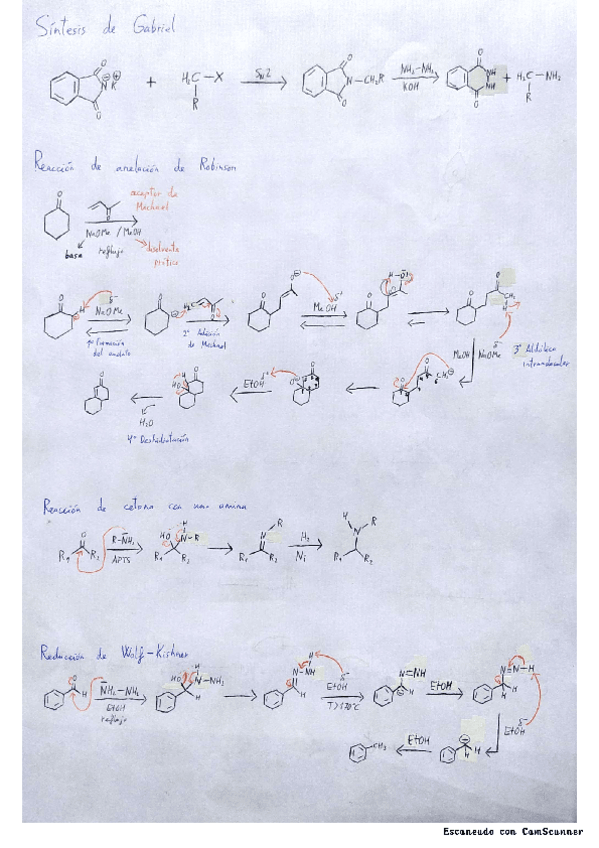 Síntesis de Gabriel
N K + H₂C-X SN2 N-CH₂R NH₂-NH₂ NH + H₂C-NH₂
O O R O O KOH NH R
Reacción de anelación de Robinson
aceptor de
Michael
NaOMe / MeOH
base reflujo disolvente
prótico
NaOMe MeOH
1º Formación
del enolato
2º Adición
de Michael
MeOH NaOMe
3º Aldólica
intramolecular
EtOH
H₂O
4º Deshidratación
Reacción de cetona con una amina
R₁ R₂ R-NH₂ HO N-R N R H₂ H N R
APTS R₁ R₂ R₁ R₂ Ni R₁ R₂
Reducción de Wolf-Kishner
NH₂-NH₂ HO N-NH₂ N-NH EtOH N=NH EtOH N=N-H
EtOH
reflujo
EtOH
CH₃ EtOH
Escaneado con CamScanner